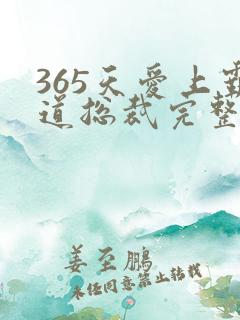 365天爱上霸
道总裁完整
姜至鹏
未经同意禁止转载